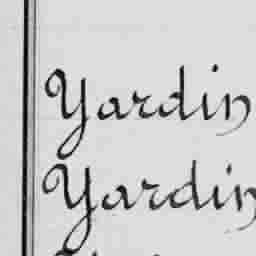 Yardin
Yardin